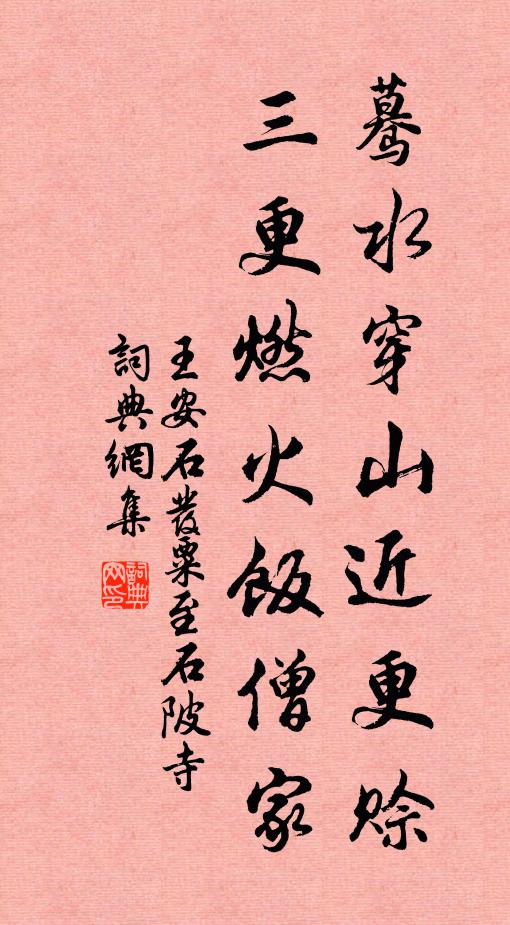 蓦水穿山近更賒
三更燃火飯僧家
王安石發粟至石陂寺
詞典網集
詞典網印